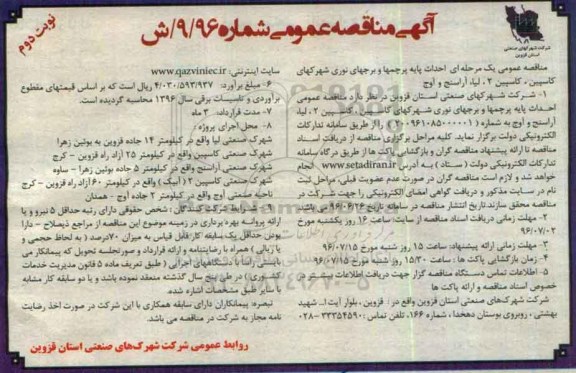 نوبت دوم
آگهی مناقصه عمومی شماره ۹/۹۶/ش
شرکت شهرکهای صنعتی
استان قزوین
مناقصه عمومی یک مرحله ای احداث پایه پرچمها و برجهای نوری شهرکهای
کاسپین، کاسپین ۲، لیا، آراسنج و آوج
۱- شرکت شهرکهای صنعتی استان قزوین در نظر دارد مناقصه عمومی
احداث پایه پرچمها و برجهای نوری شهرکهای کاسپین، کاسپین ۲، لیا،
آراسنج و آوج به شماره را از طریق سامانه تدارکات
الکترونیکی دولت برگزار نماید. کلیه مراحل برگزاری مناقصه از دریافت اسناد
مناقصه تا ارائه پیشنهاد مناقصه گران و بازگشایی پاکت ها از طریق درگاه سامانه
تدارکات الکترونیکی دولت (ستاد) به آدرس www.setadiran.ir انجام
خواهد شد و لازم است مناقصه گران در صورت عدم عضویت قبلی، مراحل ثبت
نام در سایت مذکور و دریافت گواهی امضای الکترونیکی را جهت شرکت در
مناقصه محقق سازند. تاریخ انتشار مناقصه در سامانه تاریخ ۹۶/۰۶/۲۶ می باشد.
۲- مهلت زمانی دریافت اسناد مناقصه از سایت: ساعت ۱۶ روز یکشنبه مورخ
۹۶/۰۷/۰۲
۳- مهلت زمانی ارائه پیشنهاد: ساعت ۱۵ روز شنبه مورخ ۹۶/۰۷/۱۵
۴- زمان بازگشایی پاکت ها: ساعت ۱۵/۳۰ روز شنبه مورخ ۹۶/۰۷/۱۵
۵- اطلاعات تماس دستگاه مناقصه گزار جهت دریافت اطلاعات بیشتر در
خصوص اسناد مناقصه و ارائه پاکت ها
شرکت شهرکهای صنعتی استان قزوین واقع در: قزوین، بلوار آیت ا... شهید
بهشتی، روبروی بوستان دهخدا، شماره ۱۶۶، تلفن تماس: ۳۳۳۵۴۵۹۰-۰۲۸
سایت اینترنتی: www.qazviniec.ir
۶- مبلغ برآورد: ۴/۰۳۰/۵۹۳/۹۳۷ ریال است که بر اساس قیمتهای مقطوع
برآوردی و تاسیسات برقی سال ۱۳۹۶ محاسبه گردیده است.
۷- مدت قرارداد: ۳ ماه
۸- محل اجرای پروژه:
شهرک صنعتی لیا واقع در کیلومتر ۱۴ جاده قزوین به بوئین زهرا
شهرک صنعتی کاسپین واقع در کیلومتر ۲۵ آزاد راه قزوین - کرج
شهرک صنعتی آراسنج واقع در کیلومتر ۵ جاده بوئین زهرا - ساوه
شهرک صنعتی کاسپین ۲ (آبیک) واقع در کیلومتر ۶۰ آزاد راه قزوین - کرج
ناحیه صنعتی آوج واقع در کیلومتر ۲ جاده آوج - همدان
۹- شرایط شرکت کنندگان: شخص حقوقی دارای رتبه حداقل ۵ نیرو و یا
ارائه پروانه بهره برداری در زمینه موضوع این مناقصه از مراجع ذیصلاح - دارا
بودن حداقل یک سابقه کار قابل قیاس به میزان ۷۰ درصد (به لحاظ حجمی و
یا ریالی) همراه با رضایتنامه و ارائه قرارداد و صورتجلسه تحویل که پیمانکار می
بایستی راساً با دستگاههای اجرایی (طبق تعریف ماده ۵ قانون مدیریت خدمات
کشوری) در طی پنج سال گذشته منعقد نموده باشد و یا دو سابقه کار مشابه
سایر طبق مشخصات اشاره شده
تبصره: پیمانکاران دارای سابقه همکاری با این شرکت در صورت اخذ رضایت
نامه مجاز به شرکت در مناقصه می باشد.
روابط عمومی شرکت شهرک های صنعتی استان قزوین